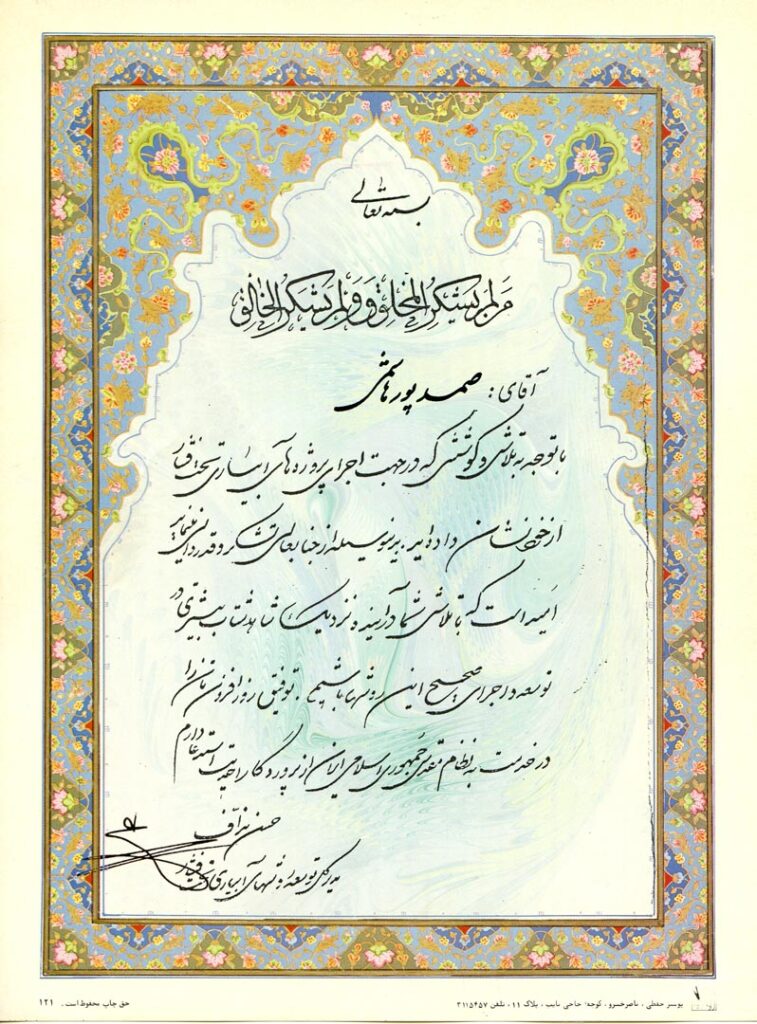 بسمه تعالی
من لم یشکر المخلوق و لم یشکر الخالق
آقای : صمد پورهاشمی
با توجه به تلاش و کوششی که در جهت اجرای پروژه های آبیاری تحت فشار
از خود نشان داده اید بدینوسیله از جنابعالی تشکر و قدردانی مینماید
امید است که با تلاش شما در آینده نزدیک شاهد شتاب بیشتری در
توسعه و اجرای صحیح این روشها باشیم . توفیق روزافزونتان را
در خدمت به نظام مقدس جمهوری اسلامی ایران از پروردگار احدیت استدعا دارم
حسن
مدیر کل توسعه روشهای آبیاری تحت فشار
پوستر حفظی ، ناصرخسرو ، کوچه حاجی نایب ، پلاک ۱۱ ، تلفن ۳۱۱۵۴۵۷
حق چاپ محفوظ است . ۱۲۱